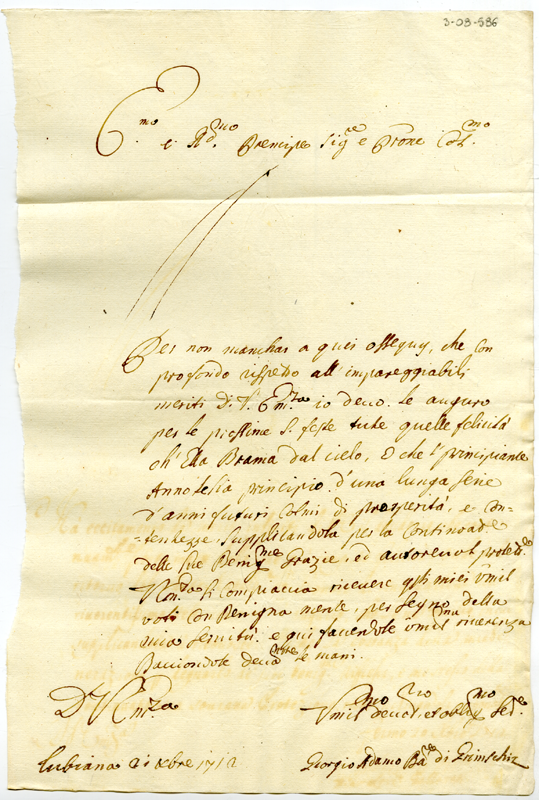 3-03-586
E.mo e R.d.mo Prencipe Sig.re e Prone Col.mo
Per non manchar a quei ossequy, che con
profondo rispetto all'impareggiabili
meriti di V. Em.za io devo. le auguro
per le prossime S. feste tute quelle felicità
ch'Ella Brama dal cielo, e che l'principiante
Anno le sia principio d'una lunga serie
d'anni futuri colmi di prosperità, e con-
-tentezze. Supplicandola per la Continoa.de
delle sue Benig.me Grazie, ed autorevol protet.
si Compiaccia ricevere q.sti miei Umil
voti con Benigna mente, per segno della
mia servitù. e qui facendole Umil.ma riverenza
Baciondole le mani.
D V Em.za
Umil.mo devot.mo et obblig.mo Se.e
Lubiana 21 xbre 1712
Giorgio Adamo Ba.ne di Grimschiz